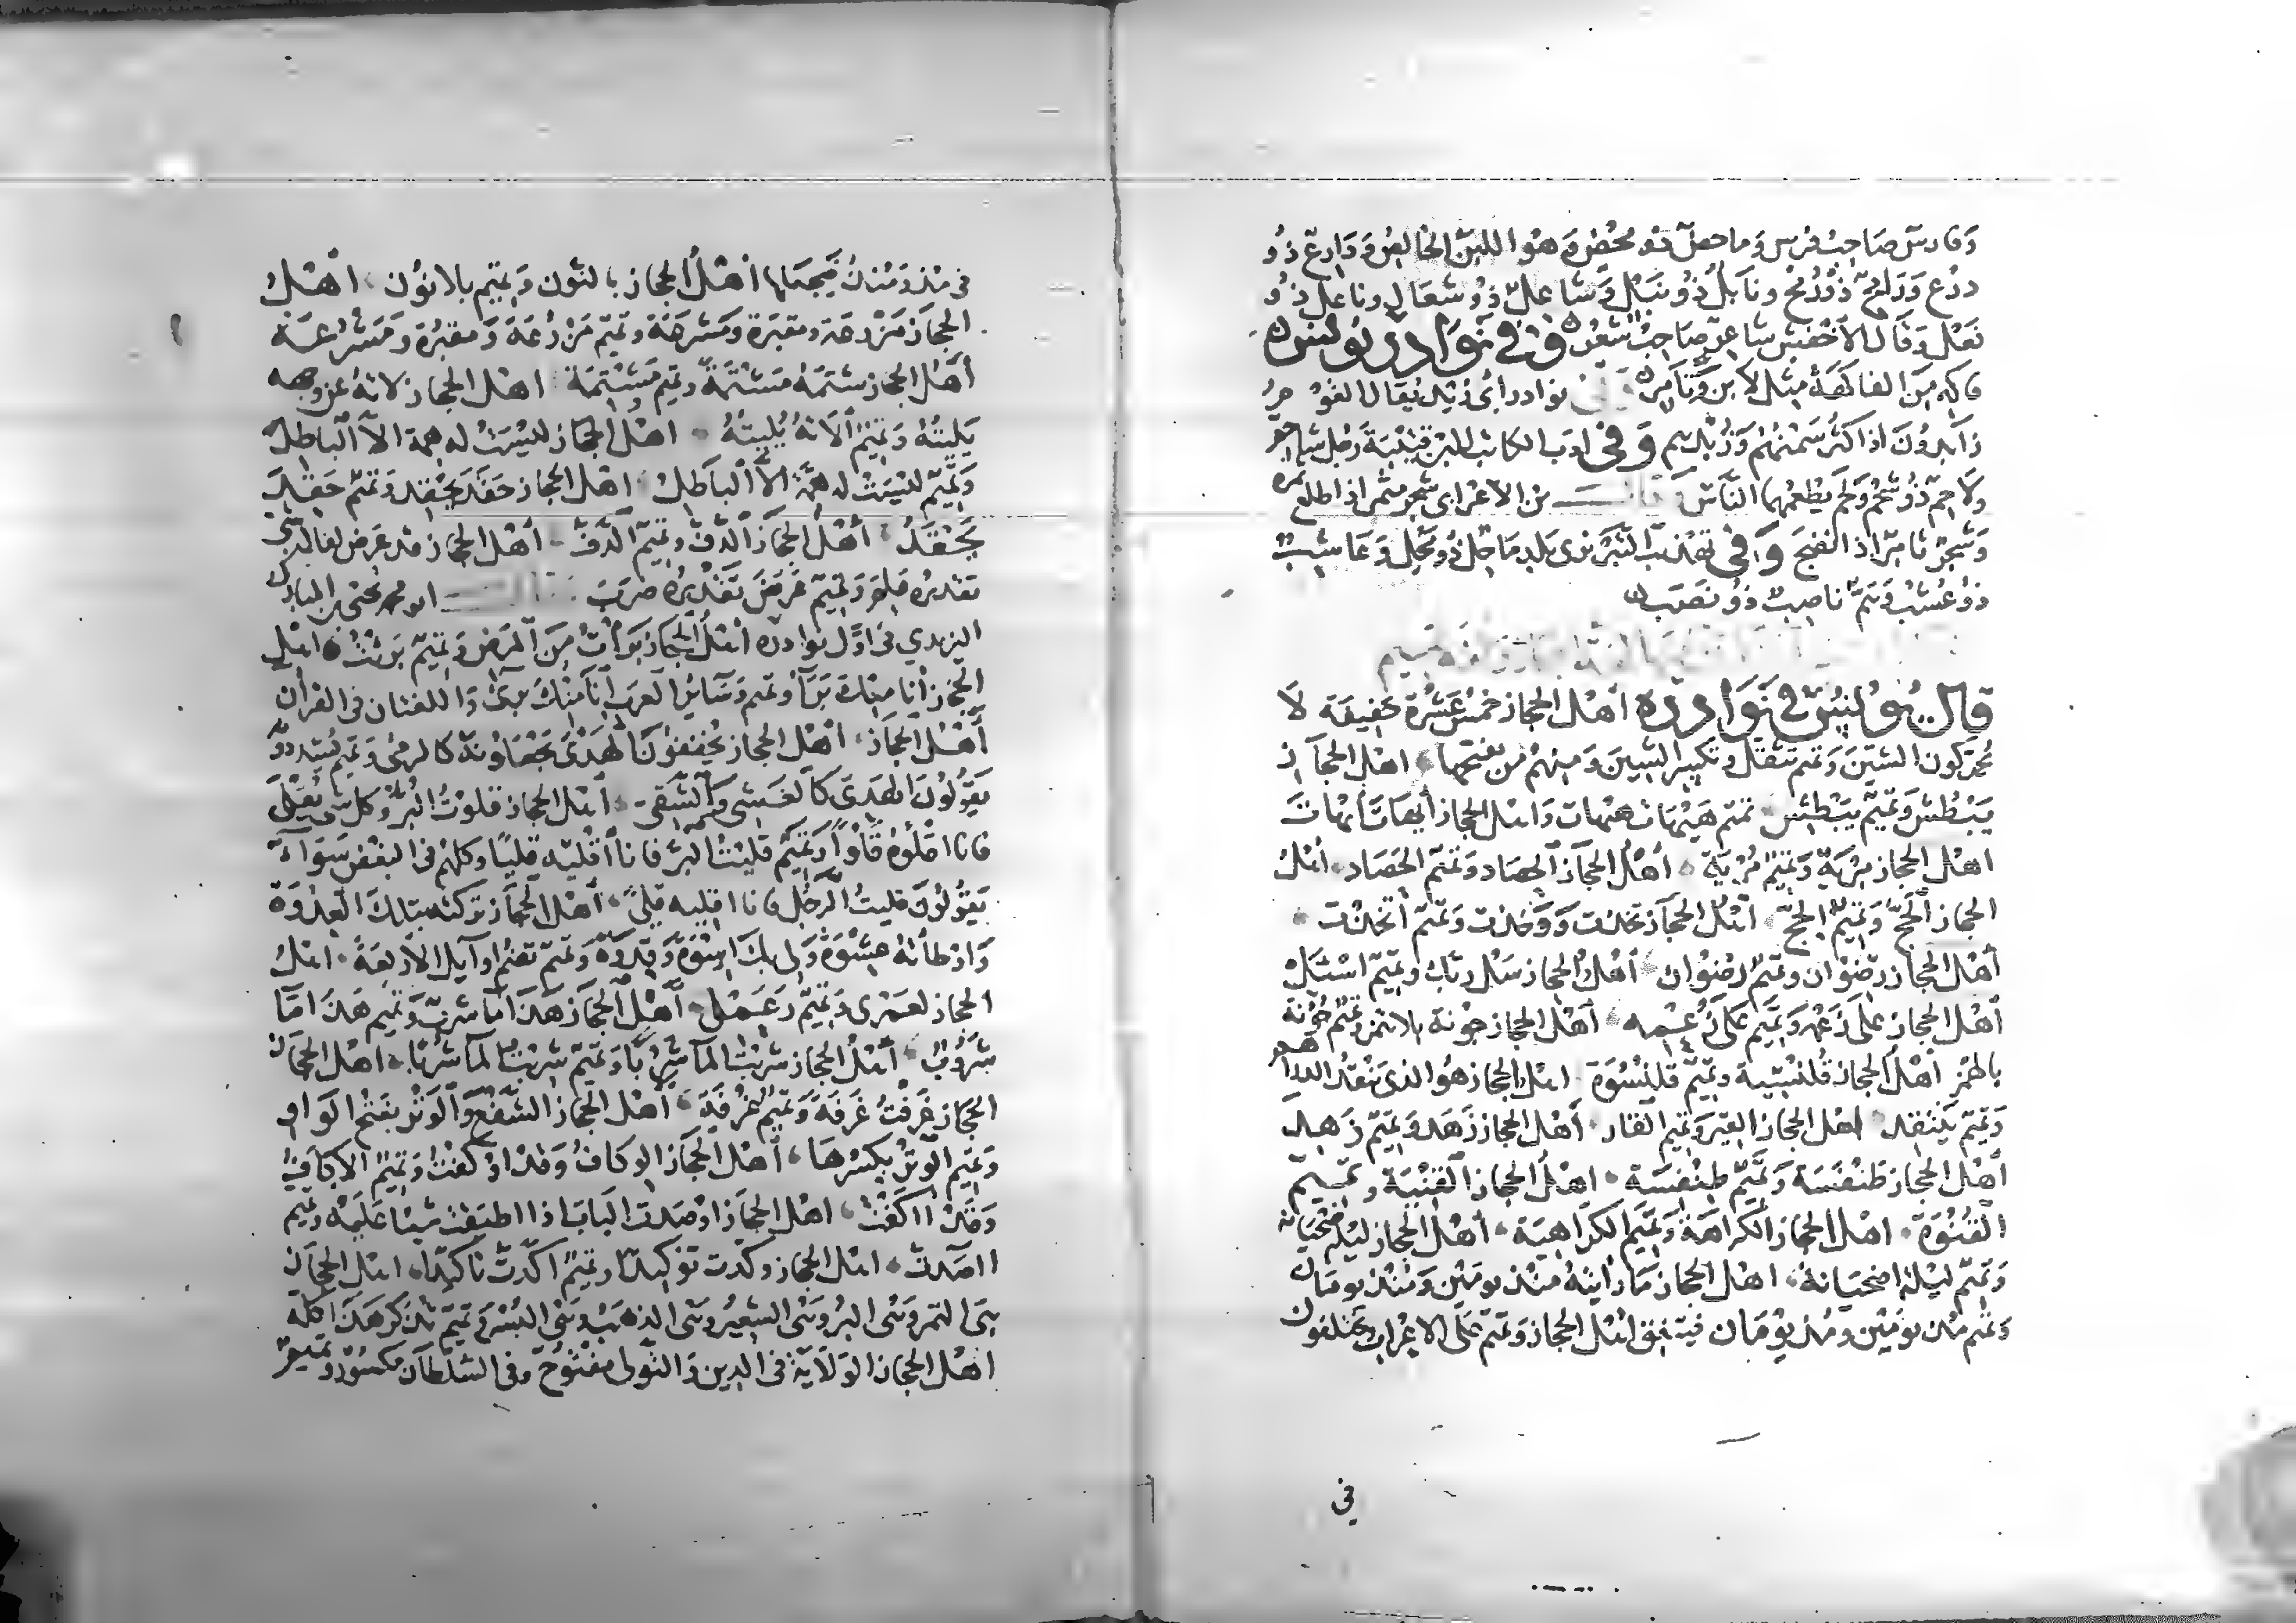 وَفارس صَاحِبُ فرس وَماحض ذو محْض وَهُوا اللبن الخالص وَدَارع ذُو
درْع وَرَامح ذُوْرُمح ونَابلٌ ذُو نَبْل وَشاعل ذُو شعَال وناعل ذو
نَعْل وَقَال الأخفش شاعر صَاحِبُ شعْر وفي نوَادر يونس
فاكه مِن الفاكهة مثل لابن وَتَامر نوادر ابي زيد يُقَال القَوْم
زَابدُونَ اذا كثر سَمْنهُمْ وَزُبْدهم وَفي ادب الكاتب لابن قتيبَة رَجل شاحم
ولَاحِم ذُو شحم ولحم يطعمهما النَّاسَ قال بن الأعْرابى شجر مثمر اذا اطلع ثمره
وَشجر ثامر اذا انضج وَفي تهذيب التبريزى بَلد مَاحل ذُو مَحْل وَعَاشبٌ
ذو عُشب وَهَمّ ناصبٌ ذُو نصَب
قال يونس في نوَادره اهْل الحجاز خمسَ عَشْرة خفيفَة لا
يحرّكون الشين وَتميم تثقل وتكسر الشين وَمِنهُمْ من يفتحها اهل الحجَاز
يَبْطُش وَتميم يَبْطِش تميم هَيْهَات هيهات وَاهل الحجاز ايهَات ايهَات
اهل الحجاز مِرْيَة وَتميم مُرْيَة أهل الحجَاز الحِصَاد وَتميم الحَصَاد أهل
الحجاز الحَجّ وَتميم الحِجّ أهل الحجَاز تَخذت وَوَخذت وَتميم اتخذت
أهل الحجاز رِضْوان وتميم رُضْوَان أهل الحجاز سَلْ ربّك وتميم اسْئَل
أهل الحجاز عَلَى زَعْمه وَتميم عَلَى زُعْمه أهل الحجاز جونة بلا همز وتميم جُؤْنة
بالهمز أهل الحجاز قُلنسية وتميم قلنسُوَة اهل الحجاز هُو الذى يَنْقُد الدراهم
وَتميم يَنْتقد اهل الحجاز القير وَتميم القار أهل الحجاز زَهَد وَتميم زَهِدَ
أهل الحجاز طَنْفَسَة وَتميم طِنْفِسَة اهل الحجاز القِنْيَة وتميم
القُنْوَة اهل الحجاز الكراهَة وَتميم الكراهِيَة أهل الحجاز ليلة ضَحْيَانة
وَتميم ليلة اضحيَانة اهل الحجاز مَا رأيته منذ يومَيْن وَمُنذ يومَان
وَتميم مُذ يومَيْن ومُذ يَوْمَان فيتفق اهل الحجاز وَتميم عَلَى الاعْراب وَيختلفون
في
في مُذ وَمُنذُ فيجعلها أهل الحجاز بالنون وَتميم بلا نون اهل
الحجاز مَزْرعَة ومقبَرة ومَشْرعَة وتميم مَزْرُعَة وَمقبُرة وَمَشرُعَة
أهل الحجاز شتمَه مَشْتَمَةً وتميم مَشْتِمَة اهل الحجاز لاته عن وجهه
يَليتُه وَتميم الاتهُ يُليتُهُ اهل الحجاز ليْسَتْ له همة الا الباطلَ
وَتميم ليْسَتْ له همة الا الباطلُ اهل الحجاز حَقَد يَحْقِد وَتميم حَقِدَ
يَحْقَدُ أهل الحجاز الدف وتميم الدف أهل الحجاز قد عَرض لفلان شئ
تقديره عَلِمَ وَتميم عَرَض تَقْديره ضرَبَ ابو محمد يحيى بن المبارك
اليزيدي في اوّل نوادره أهل الحجاز بَرَأتُ مِن المرَض وَتميم بَرئتُ اهل
الحجاز أنا مِنك بَرَآءٌ وتميم وَسَائر العرَب أنا منك برئٌ وَاللغتان في القرآن
أهل الحجاز أهل الحجاز يخففون الهَدْىَ يَجْعَلونه كالرمْى وَتميم تشدده
يَقُولونَ الهَدِىّ كالعَشِىّ وَالشقىّ اهل الحجاز قلوْتُ البُرَّ وَكل شئ يُقْلَى
فانا اقلوُه قَلْواً وَتميم قليتُ البُرَّ فانا أقليه قليًا وكلهم في البغض سَوَاء
يَقُولونَ قليتُ الرجُل فانا اقليه قِلىً أهل الحجاز تركته بتلك العِدْوَة
وَاوْطأته عِشْوَةً وَلى بك إسْوَة وَقِدْوَة وَتميم تضم اوَايل الاربعَة اهل
الحجاز لعَمْرى وَتميم رَعَمْلى أهل الحجاز هَذا مَآء شربٌ وَتميم هَذا مَآء
شَرُوبٌ أهل الحجاز شربْتُ المآء شُرْبًا وَتميم شربتُ المآء شَرْبًا اهل الحجَاز
الحجاز غَرَفْتُ غَرْفَةً وَتميم غُرْفَةً أهل الحجاز الشَّفْع وَالوَتْر بفتح الوَاو
وَتميم الوِتْر بكسْرهَا أهل الحجَاز الوكَاف وَقد اوْكفتُ وَتميم الاكاف
وَقد ااكفْتُ اهل الحجَاز اوْصَدت البَابَ اذا اطبقتَ شيئا عَليْه وتميم
ااصَدتُ اهل الحجاز وكدت توْكيدًا وتميم اكّدتُ تاكيدًا اهل الحجَاز
هىَ التمر وَهى البُرّ وَهى الشعير وَهى الذهَب وَهى البُسْر وَتميم تذكر هَذا كلّه
اهل الحجاز الوَلايَة في الدين وَالتولى مفتُوح وفى السلطان مكسُور وتميم